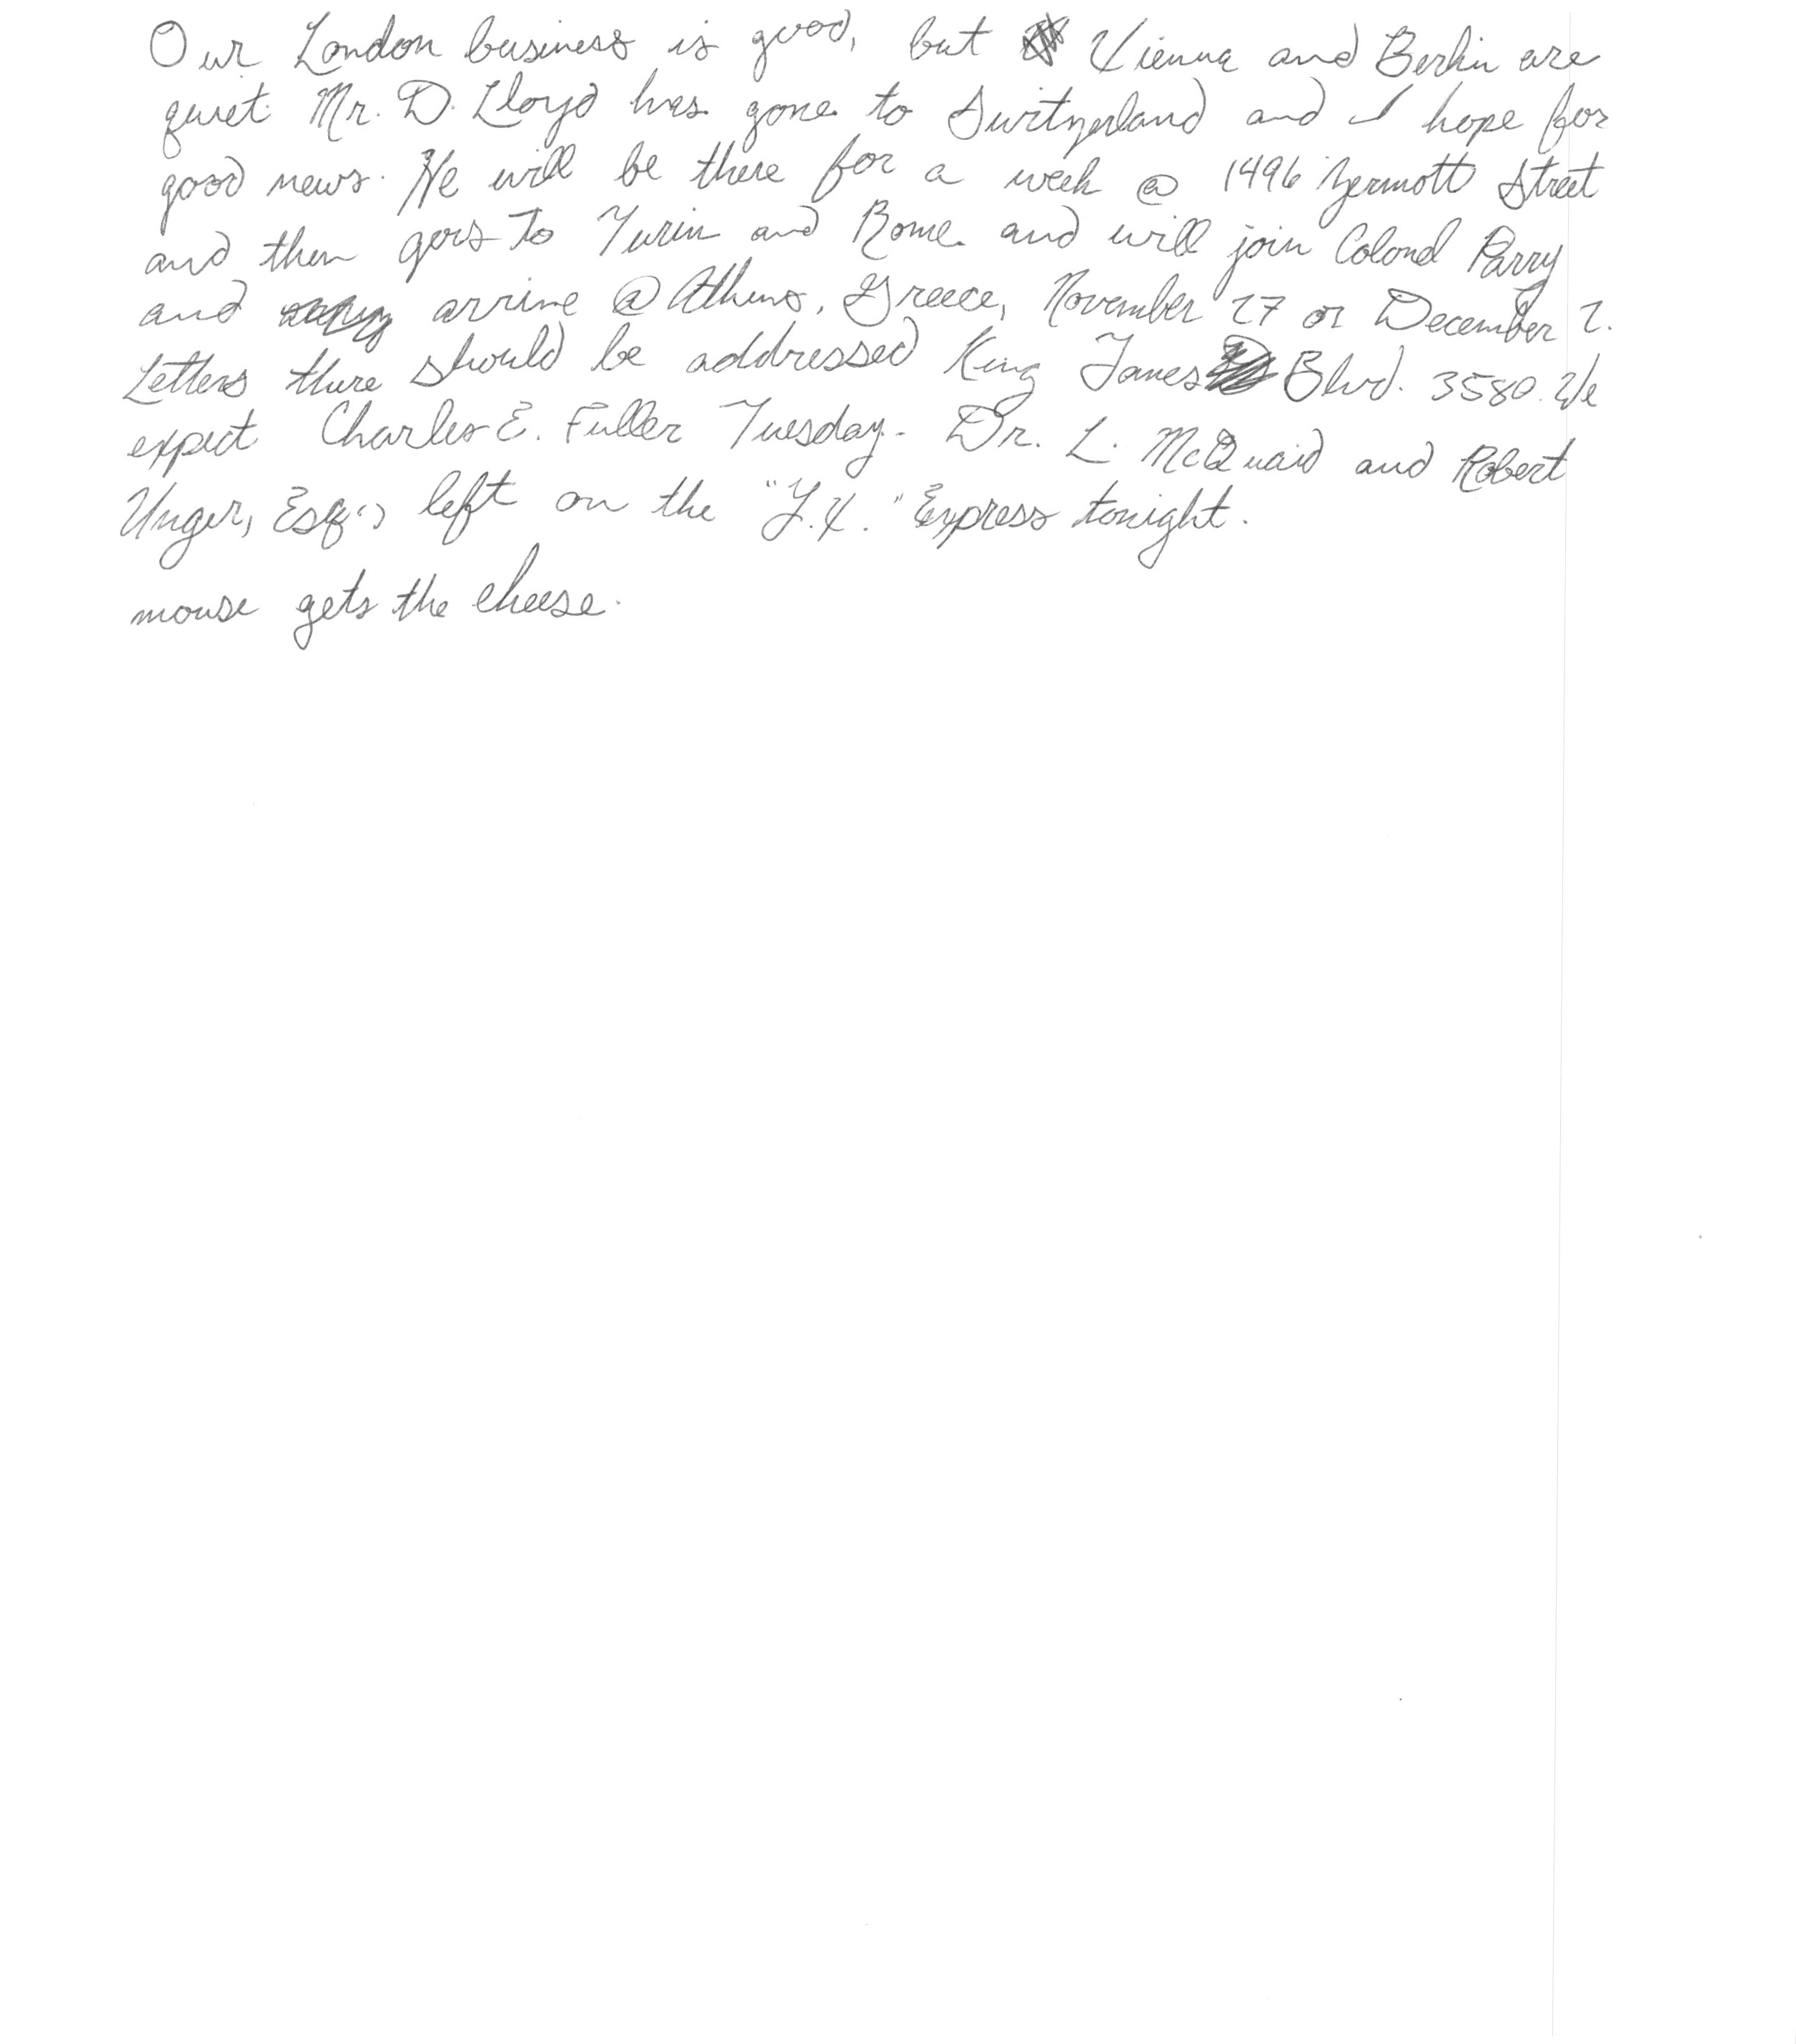 Our London business is good, but Vienna and Berlin are
quiet. Mr. D. Lloyd has gone to Switzerland and I hope for
good news. He will be there for a week @ 1496 Zermott Street
and then goes to Turin and Rome and will join Colonel Parry
and arrive @ Athens, Greece, November 27 or December 2.
Letters there should be addressed King James Blvd. 3580. We
expect Charles E. Fuller Tuesday. Dr. L. McQuaid and Robert
Unger, Esq., left on the "Y.X." Express tonight.
mouse gets the cheese.